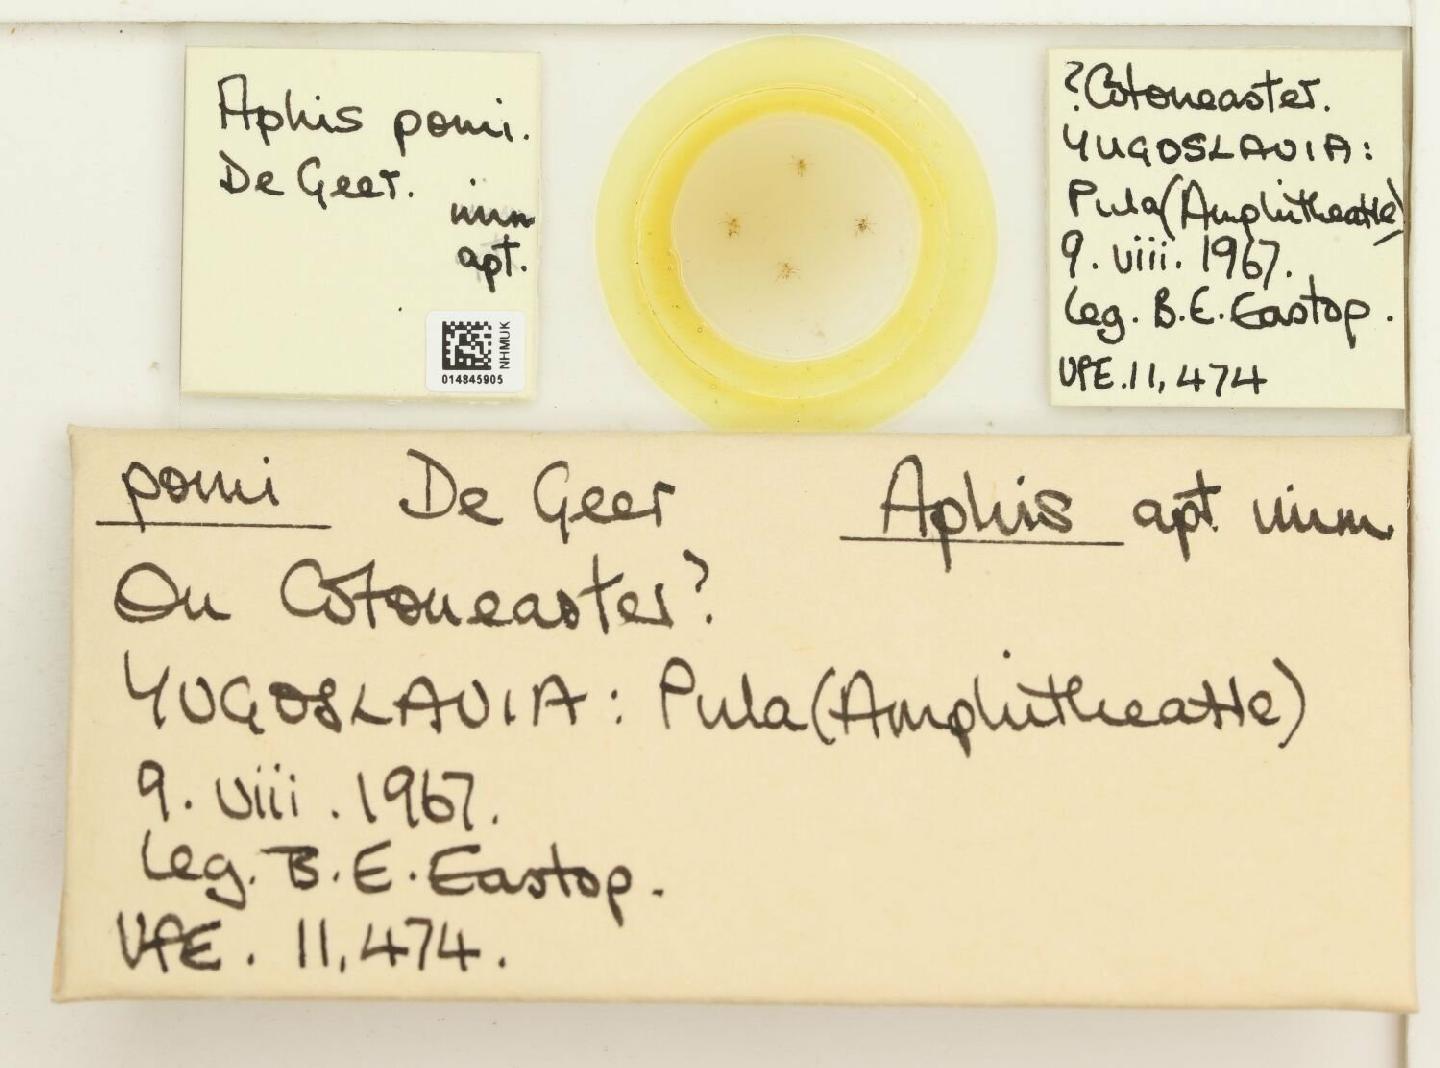 Aphis pomi.
De Geer.
imm
apt.
NHMUK
014845905
?Cotoneaster.
YUGOSLAVIA:
Pula (Amphitheatre)
9. viii. 1967.
Leg. B.E. Eastop.
VFE. 11,474
pomi De Geer Aphis apt imm
On Cotoneaster?
YUGOSLAVIA: Pula (Amphitheatre)
9. viii. 1967.
Leg. B.E. Eastop.
VFE. 11,474.